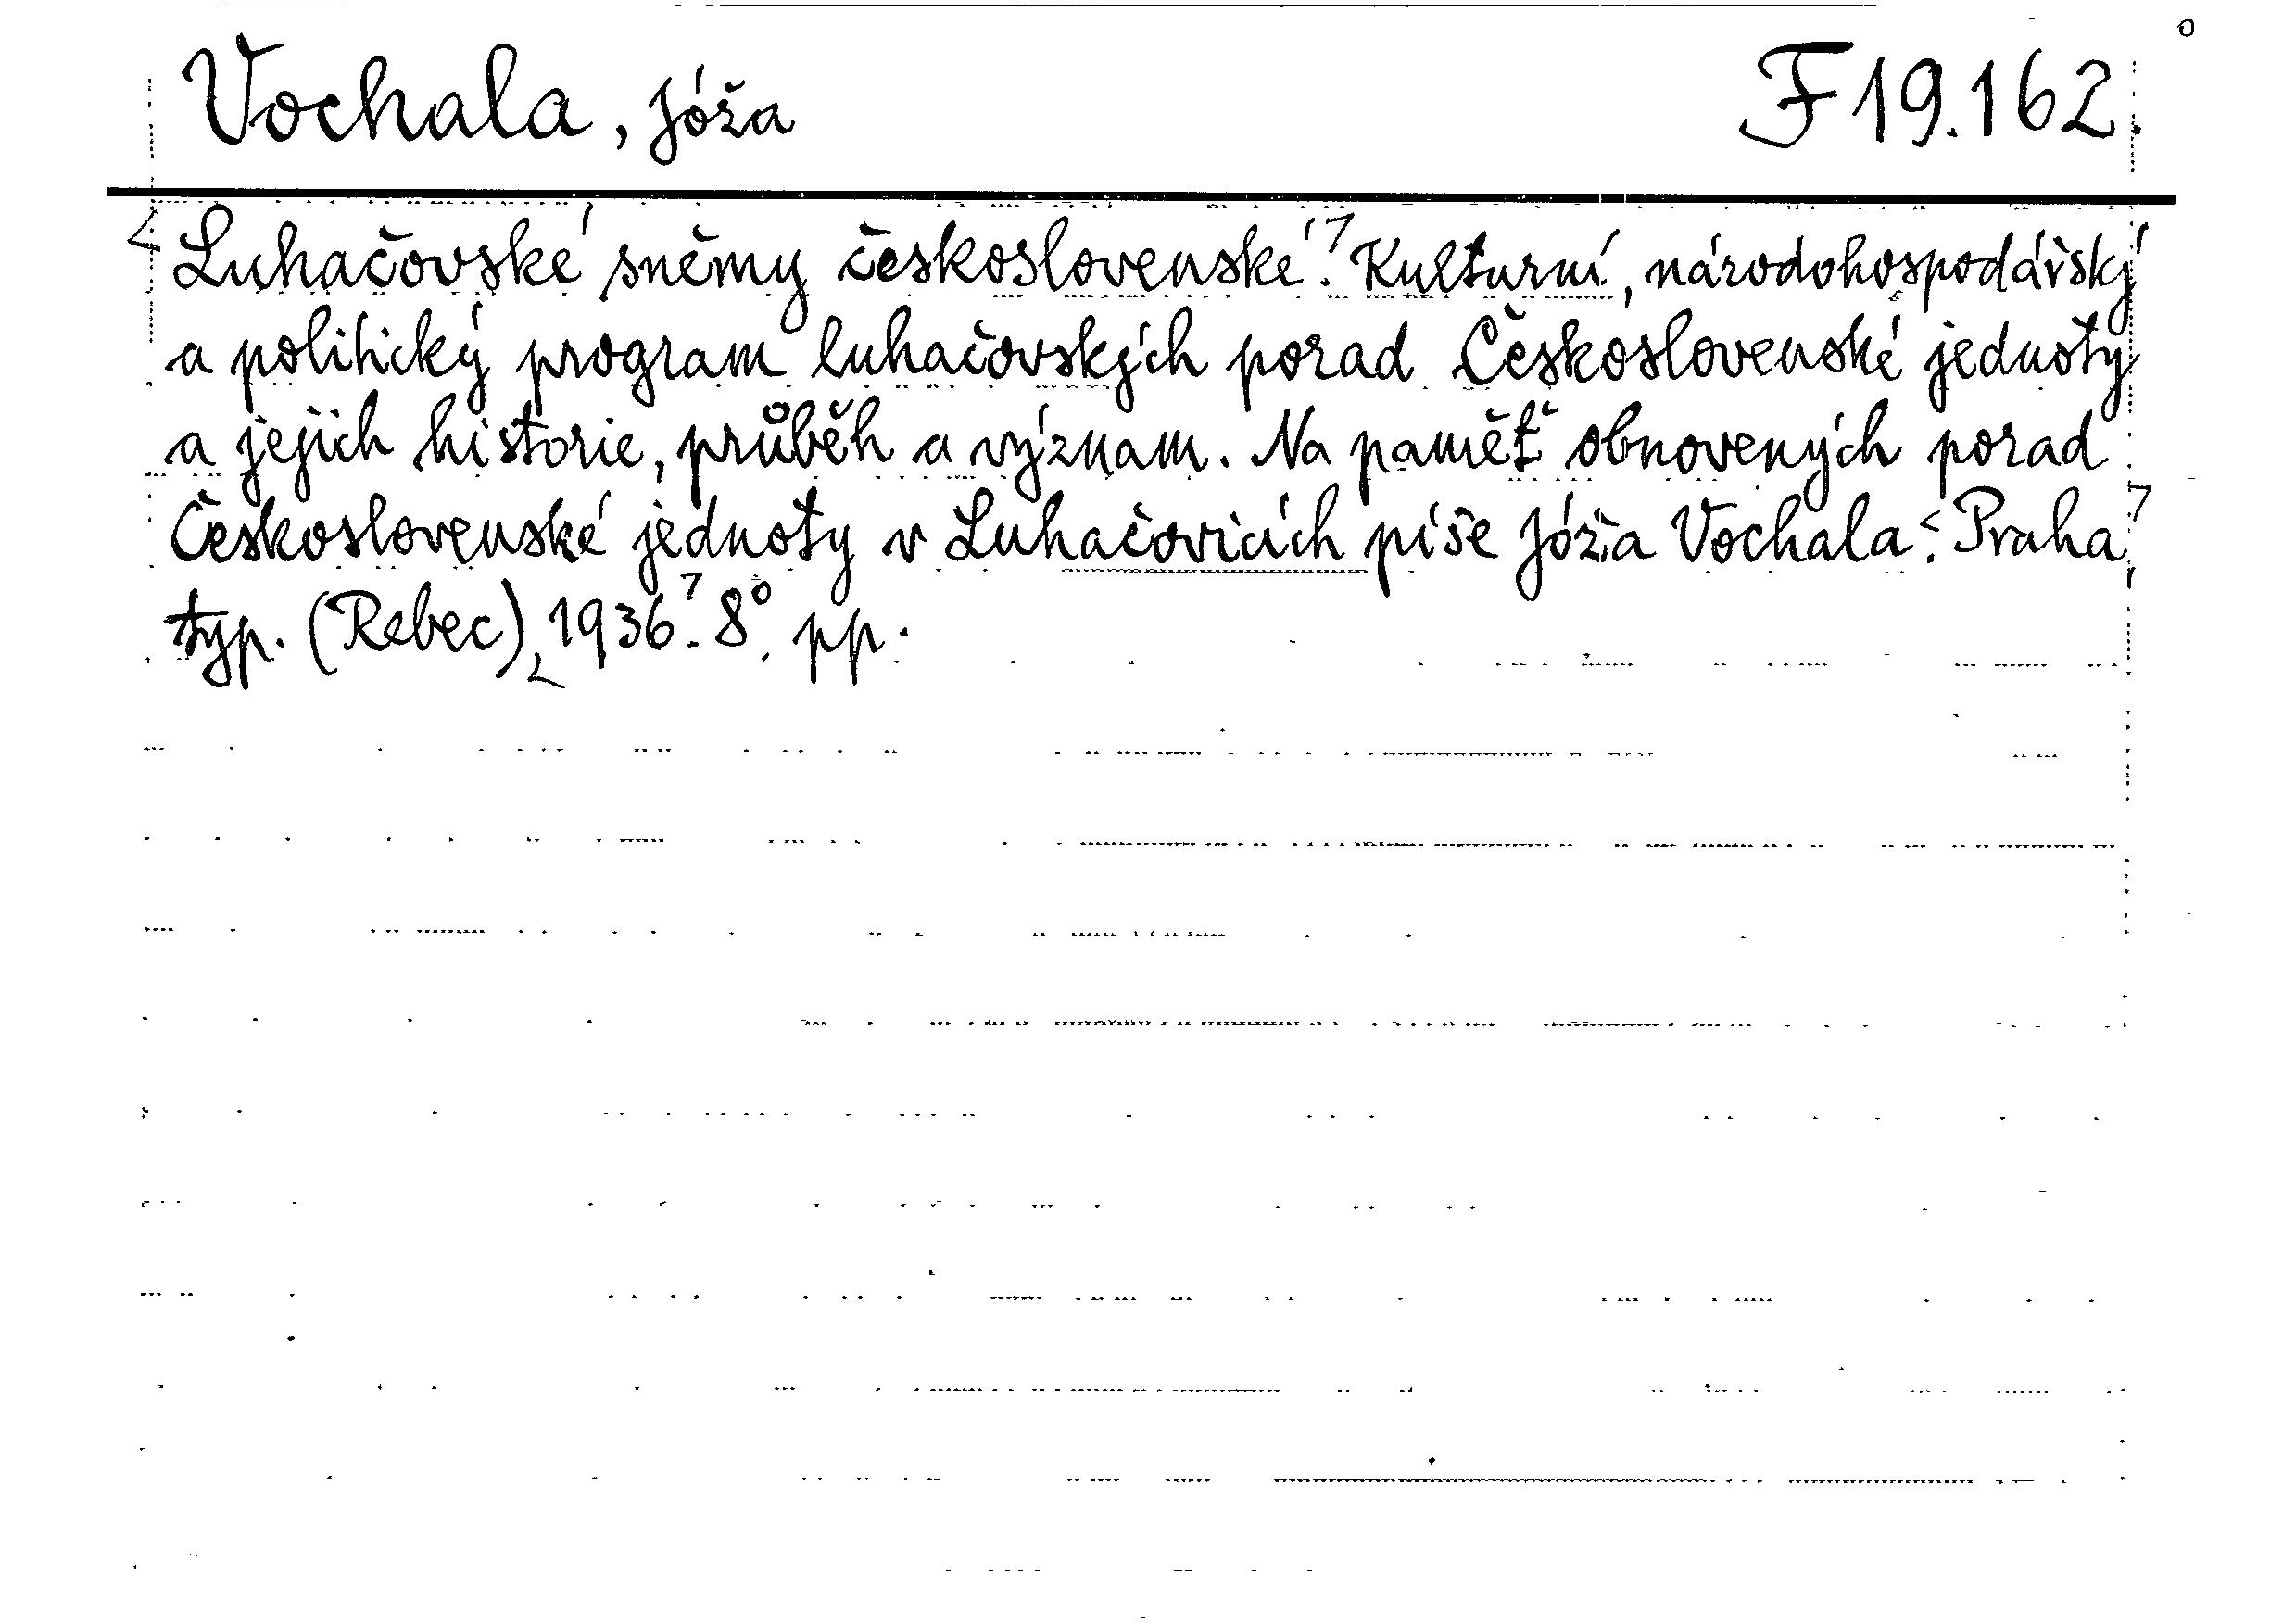 Vochala, Jóža F 19.162.
Luhačovské sněmy československé. Kulturní, národohospodářský
a politický program luhačovských porad Československé jednoty
a jejich historie, průběh a význam. Na paměť obnovených porad
Československé jednoty v Luhačovicích píše Jóža Vochala. Praha,
typ. (Rebec), 1936. 8°. pp.